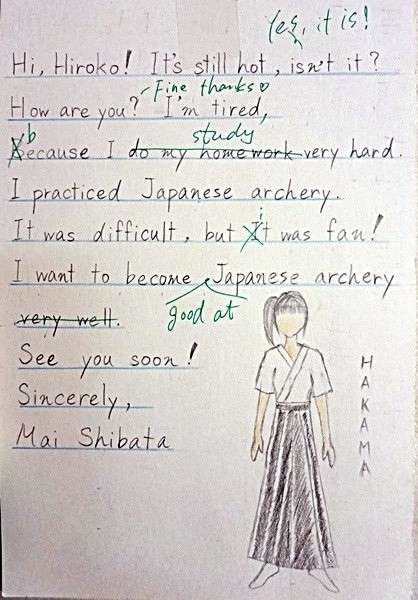 Yes, it is!
Hi, Hiroko! It's still hot, isn't it?
Fine thanks♡
How are you? I'm tired,
b study
Because I do my homework very hard.
I practiced Japanese archery.
i
It was difficult, but It was fun!
I want to become Japanese archery
good at
very well.
See you soon!
Sincerely,
Mai Shibata
HAKAMA